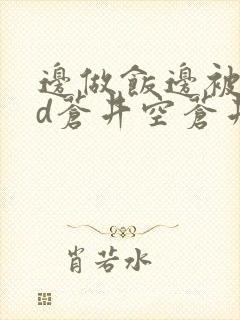 邊做飯邊被
d蒼井空蒼井
肖若水